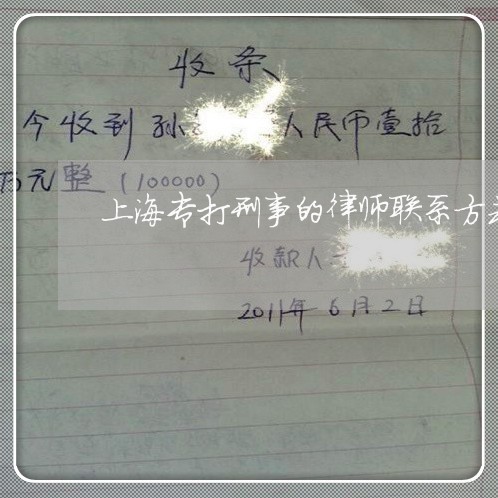 收条
今收到孙 人民币壹拾
万元整（100000）
上海专打刑事的律师联系方
收款人
2011年6月2日